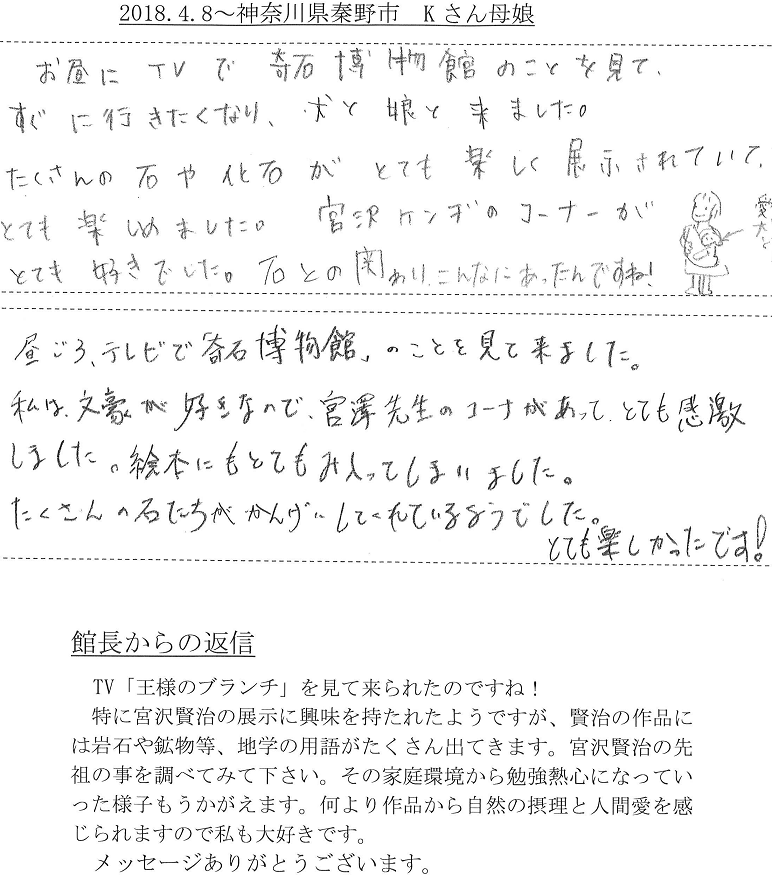 2018.4.8～神奈川県秦野市　Kさん母娘
お昼に TVで 奇石博物館のことを見て、
すぐに行きたくなり、犬と娘と来ました。
たくさんの石や化石がとても楽しく展示されていて、
とても楽しめました。宮沢ケンヂのコーナーが
とても好きでした。石との関わり、こんなにあったんですね!
愛犬と
昼ごろ、テレビで「奇石博物館」のことを見て来ました。
私は、文豪が好きなので、宮澤先生のコーナがあって、とても感激
しました。絵本にもとてもみ入ってしまいました。
たくさんの石たちがかんげいしてくれているようでした。
とても楽しかったです!
館長からの返信
TV「王様のブランチ」を見て来られたのですね！
特に宮沢賢治の展示に興味を持たれたようですが、賢治の作品に
は岩石や鉱物等、地学の用語がたくさん出てきます。宮沢賢治の先
祖の事を調べてみて下さい。その家庭環境から勉強熱心になってい
った様子もうかがえます。何より作品から自然の摂理と人間愛を感
じられますので私も大好きです。
メッセージありがとうございます。